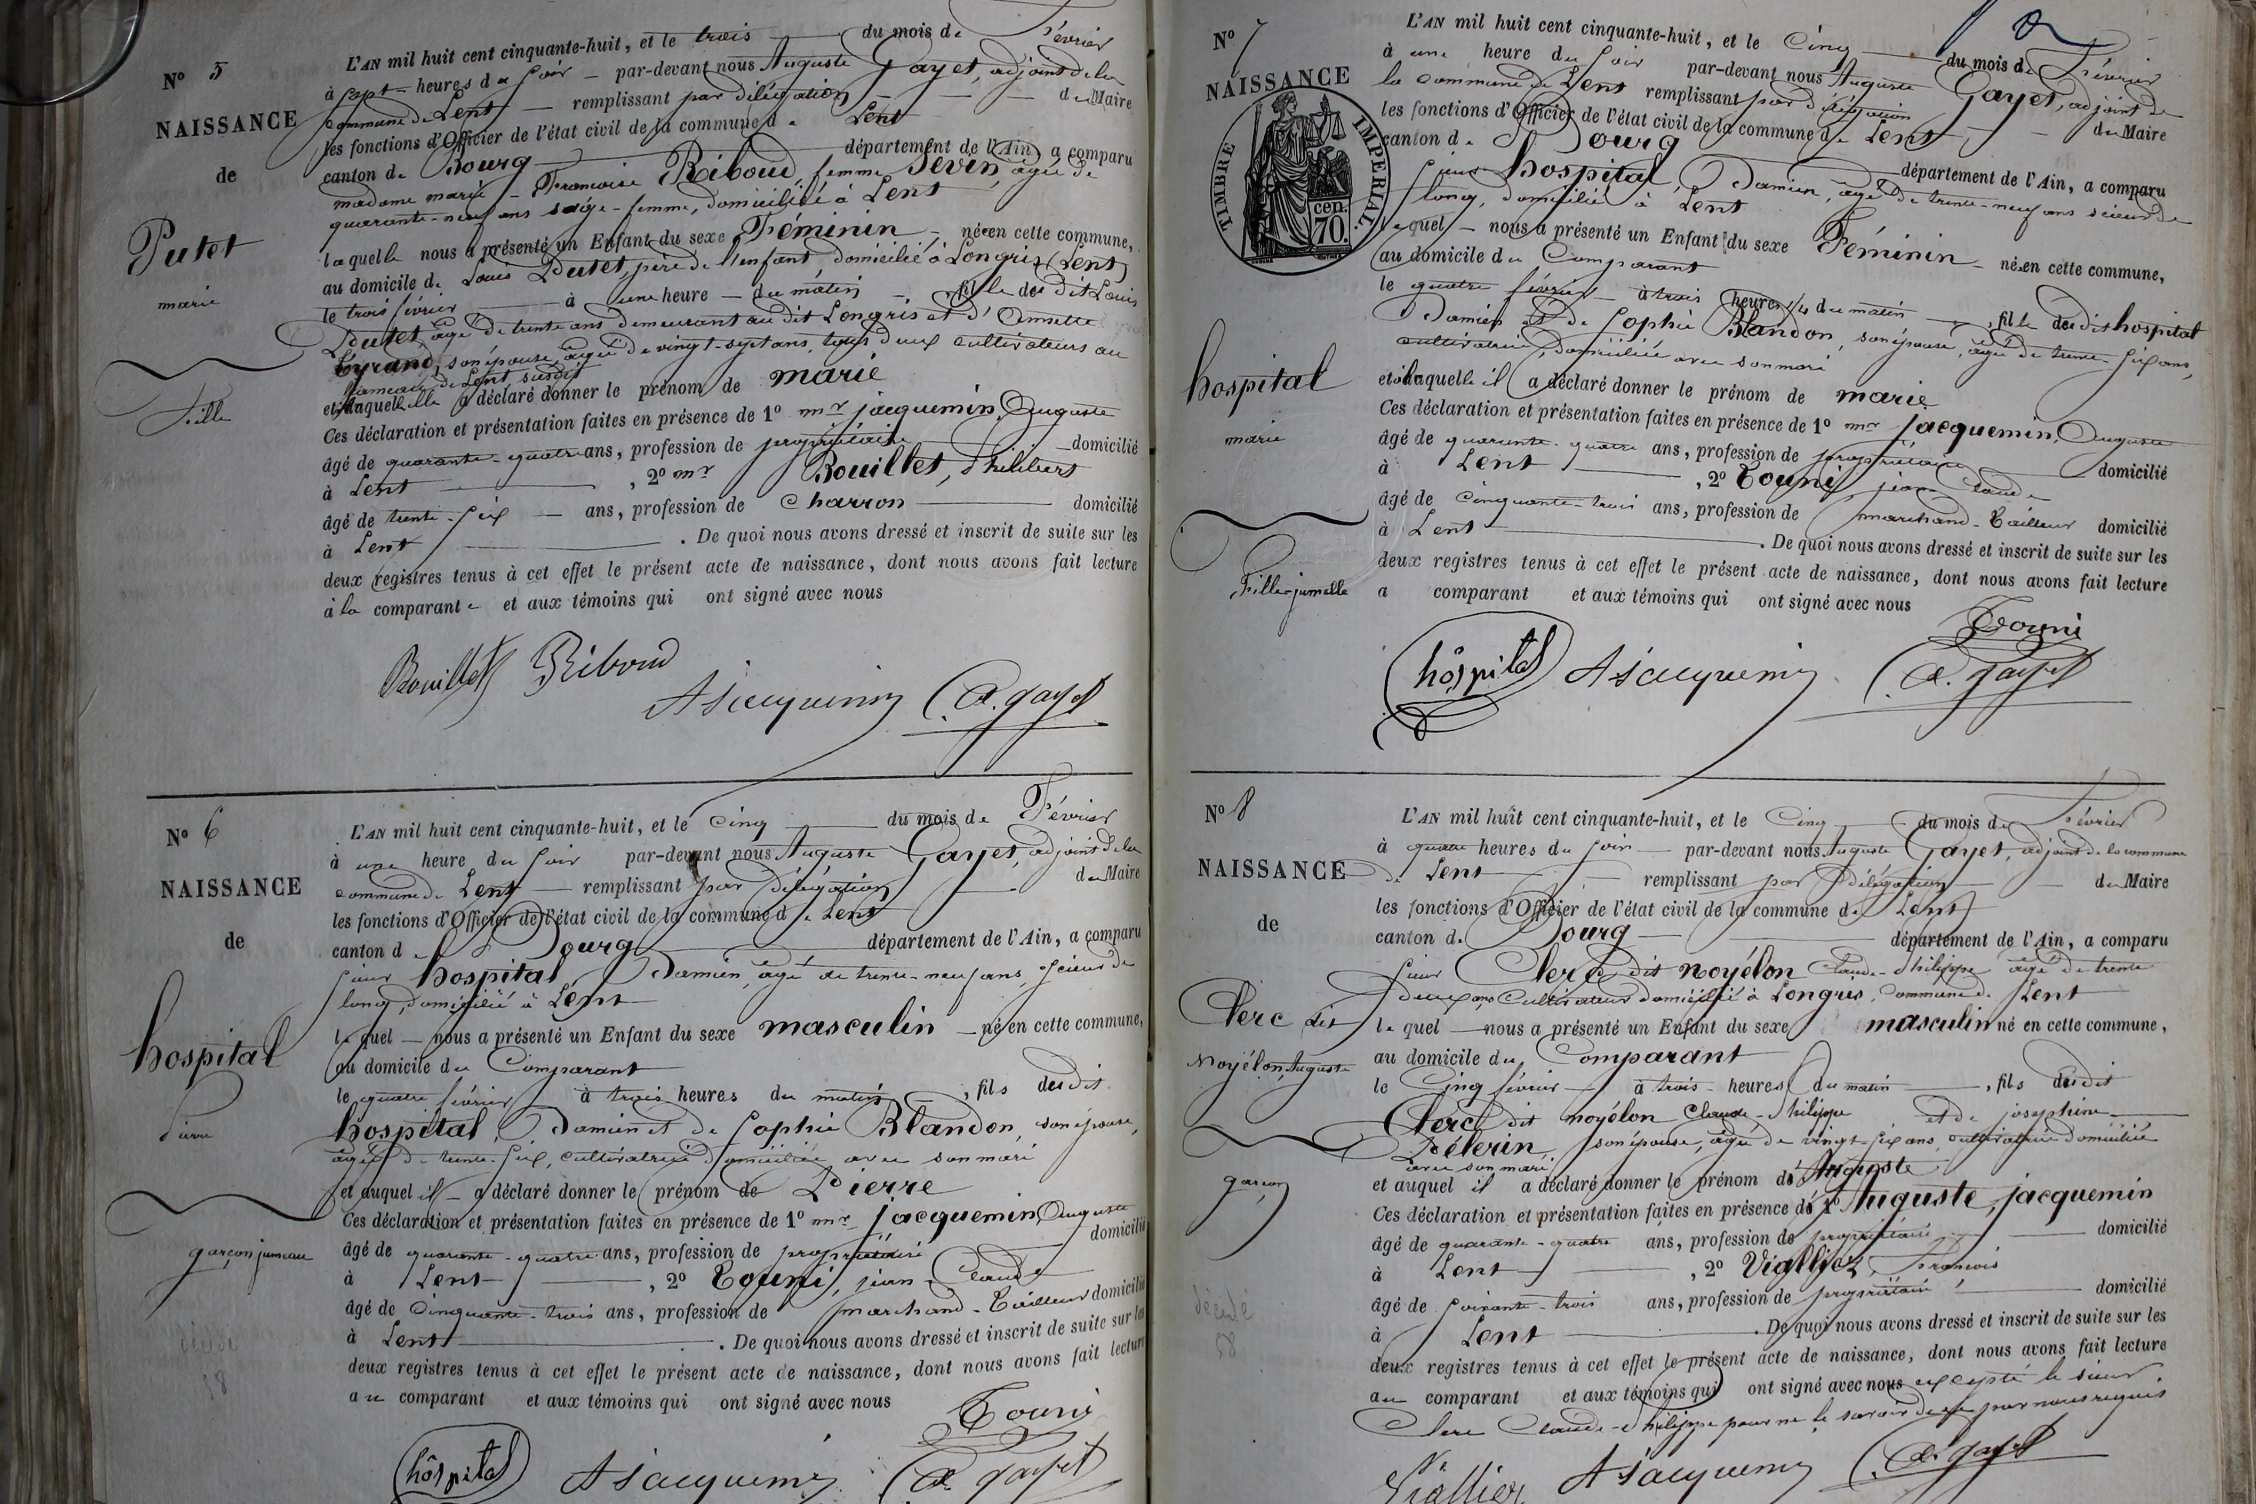 N° 5
NAISSANCE
de
Putet
marie
fille
L'AN mil huit cent cinquante-huit, et le trois du mois de Février
à sept heures du soir par-devant nous Auguste Gayet, adjoint de la
commune de Lent remplissant par délégation du Maire
les fonctions d'Officier de l'état civil de la commune de Lent
canton de Bourg département de l'Ain, a comparu
madame marie-Francoise Riboud, femme Sevin, agée de
quarante-neuf ans sage-femme, domiciliée à Lent
laquelle nous a présenté un Enfant du sexe Féminin née en cette commune,
au domicile de Louis Putet, père de l'enfant domicilié à Longris (Lent)
le trois février à une heure du matin, fille du dit Louis
Putet, agé de trente ans demeurant au dit Longris et d'
Tyrand, son épouse, agée de vingt-sept ans, tous deux cultivateurs au
hameau de Lent susdit
et à laquelle elle a déclaré donner le prénom de marie
Ces déclaration et présentation faites en présence de 1° mr jacquemin, Auguste
âgé de quarante-quatre ans, profession de propriétaire domicilié
à Lent, 2° mr Bouillet, Philibert
âgé de trente-six ans, profession de Charron domicilié
à Lent. De quoi nous avons dressé et inscrit de suite sur les
deux registres tenus à cet effet le présent acte de naissance, dont nous avons fait lecture
à la comparante et aux témoins qui ont signé avec nous
Bouillet Riboud
A Jacquemin A. gayet
N° 6
NAISSANCE
de
hospital
Pierre
garçon jumeau
décédé
58
L'AN mil huit cent cinquante-huit, et le Cinq du mois de Février
à une heure du soir par-devant nous Auguste Gayet, adjoint de la
commune de Lent remplissant par délégation du Maire
les fonctions d'Officier de l'état civil de la commune de Lent
canton de Bourg département de l'Ain, a comparu
sieur hospital Damien, agé de trente-neuf ans, scieur de
long, domicilié à Lent
lequel nous a présenté un Enfant du sexe masculin né en cette commune,
au domicile du Comparant
le quatre février à trois heures du matin, fils du dit
hospital, Damien et de Sophie Blandon, son épouse,
agée de trente-six, cultivatrice domiciliée avec son mari
et auquel il a déclaré donner le prénom de Pierre
Ces déclaration et présentation faites en présence de 1° mr jacquemin, Auguste
âgé de quarante-quatre ans, profession de propriétaire domicilié
à Lent, 2° Touni, jean-Claude
âgé de Cinquante-trois ans, profession de marchand-Tailleur domicilié
à Lent. De quoi nous avons dressé et inscrit de suite sur les
deux registres tenus à cet effet le présent acte de naissance, dont nous avons fait lecture
au comparant et aux témoins qui ont signé avec nous
Touni
hôspital A Jacquemin A. gayet
N° 7
NAISSANCE
TIMBRE IMPERIAL.
70 cen.
hospital
marie
Fille jumelle
L'AN mil huit cent cinquante-huit, et le Cinq du mois de Février
à une heure du soir par-devant nous Auguste Gayet, adjoint de
la commune de Lent remplissant par délégation du Maire
les fonctions d'Officier de l'état civil de la commune de Lent
canton de Bourg département de l'Ain, a comparu
sieur hospital, Damien, agé de trente-neuf ans scieur de
long, domicilié à Lent
lequel nous a présenté un Enfant du sexe Féminin née en cette commune,
au domicile du Comparant
le quatre février à trois heures 1/4 du matin, fille du dit hospital
Damien et de Sophie Blandon, son épouse, agée de trente-six ans,
cultivatrice, domiciliée avec son mari
et à laquelle il a déclaré donner le prénom de marie
Ces déclaration et présentation faites en présence de 1° mr jacquemin, Auguste
âgé de quarante-quatre ans, profession de propriétaire domicilié
à Lent, 2° Touni jean Claude
âgé de Cinquante-trois ans, profession de marchand-Tailleur domicilié
à Lent. De quoi nous avons dressé et inscrit de suite sur les
deux registres tenus à cet effet le présent acte de naissance, dont nous avons fait lecture
a comparant et aux témoins qui ont signé avec nous
Touni
hôspital A Jacquemin A. gayet
N° 8
NAISSANCE
de
Clerc dit
Noyélon, Auguste
garçon
décédé
58
L'AN mil huit cent cinquante-huit, et le Cinq du mois de Février
à quatre heures du soir par-devant nous Auguste Gayet, adjoint de la commune
de Lent remplissant par délégation du Maire
les fonctions d'Officier de l'état civil de la commune de Lent
canton de Bourg département de l'Ain, a comparu
sieur Clerc dit noyélon Claude-Philippe agé de trente
deux ans Cultivateur domicilié à Longris, Commune de Lent
lequel nous a présenté un Enfant du sexe masculin né en cette commune,
au domicile du Comparant
le Cinq février à trois heures du matin, fils du dit
Clerc dit noyélon Claude-Philippe et de josephine
Pélerin, son épouse, agée de vingt-six ans, cultivatrice domiciliée
avec son mari
et auquel il a déclaré donner le prénom de Auguste
Ces déclaration et présentation faites en présence de 1° Auguste, jacquemin
âgé de quarante-quatre ans, profession de propriétaire domicilié
à Lent, 2° Viallier, Francois
âgé de soixante-trois ans, profession de propriétaire domicilié
à Lent. De quoi nous avons dressé et inscrit de suite sur les
deux registres tenus à cet effet le présent acte de naissance, dont nous avons fait lecture
au comparant et aux témoins qui ont signé avec nous excepté le sieur
Clerc Claude-Philippe pour ne le savoir de ce par nous requis
Viallier A Jacquemin A. gayet